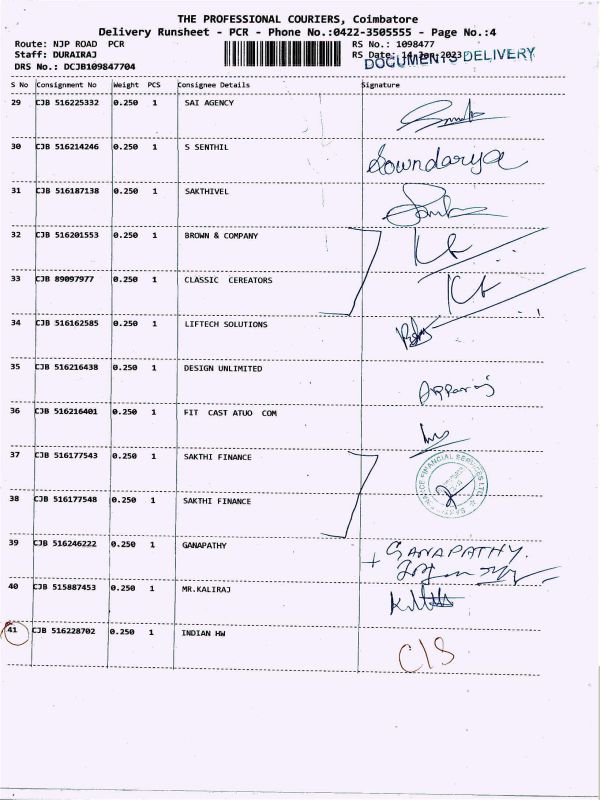 THE PROFESSIONAL COURIERS, Coimbatore
Delivery Runsheet - PCR - Phone No.:0422-3505555 - Page No.:4
Route: NJP ROAD PCR RS No.: 1098477
Staff: DURAIRAJ RS Date: 14-Jan-2023
DOCUMENTS DELIVERY
DRS No.: DCJB109847704
S No Consignment No Weight PCS Consignee Details Signature
29 CJB 516225332 0.250 1 SAI AGENCY
30 CJB 516214246 0.250 1 S SENTHIL Sowndarya
31 CJB 516187138 0.250 1 SAKTHIVEL
32 CJB 516201553 0.250 1 BROWN & COMPANY
33 CJB 89097977 0.250 1 CLASSIC CEREATORS
34 CJB 516162585 0.250 1 LIFTECH SOLUTIONS
35 CJB 516216438 0.250 1 DESIGN UNLIMITED
36 CJB 516216401 0.250 1 FIT CAST ATUO COM
37 CJB 516177543 0.250 1 SAKTHI FINANCE
38 CJB 516177548 0.250 1 SAKTHI FINANCE
39 CJB 516246222 0.250 1 GANAPATHY GANAPATHY.
40 CJB 515887453 0.250 1 MR.KALIRAJ
41 CJB 516228702 0.250 1 INDIAN HW C/S